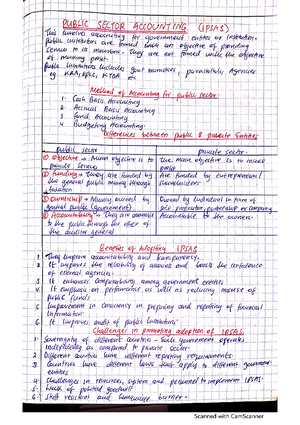 PUBLIC SECTOR ACCOUNTING (IPSAS)
This involves accounting for government entities or institution.
Public institutions are formed with an objective of providing
Service to its members. They are not formed with the objective
of making profit.
Public Institutions includes Govt ministries, parastatals, Agencies
eg KRA, KPLC, KTDA etc
Method of Accounting for public sector
1. Cash Basis Accounting
2. Accrual Basis Accounting
3. Fund Accounting
4. Budgeting Accounting
Differences between public & private Entities
Public sector
private sector
① Objective - Main objective is to provide services
The main objective is to make profit
② Funding - They are funded by the general public mainly through taxation
Are funded by entrepreneurs / shareholders
③ Ownership - Mainly owned by general public (Government)
Owned by individual in form of sole proprietor, partnership or company
④ Accountability - They are accountable to the public through the office of the auditor general
Accountable to the owners.
Benefits of Adopting IPSAS
1. They improve accountability and transparency.
2. It improves the reliability of accounts and boosts the confidence
of external agencies.
3. It enhances comparability among government entities
4. It emphasis on performance as well as reducing misuse of
public funds
5. Improvement in consistency in preparing and reporting of financial
Information.
6. It improves audit of public institutions.
Challenges in promoting adoption of IPSAS
1. Sovereignty of different countries - Such government operates
independently as compared to private sector.
2. Different countries have different reporting requirements.
3. Countries have different laws that apply to different government
entities
4. Challenges in resources, system and personnel to implement IPSAS.
5. Lack of political goodwill
6. Staff resistant and language barrier.
Scanned with CamScanner